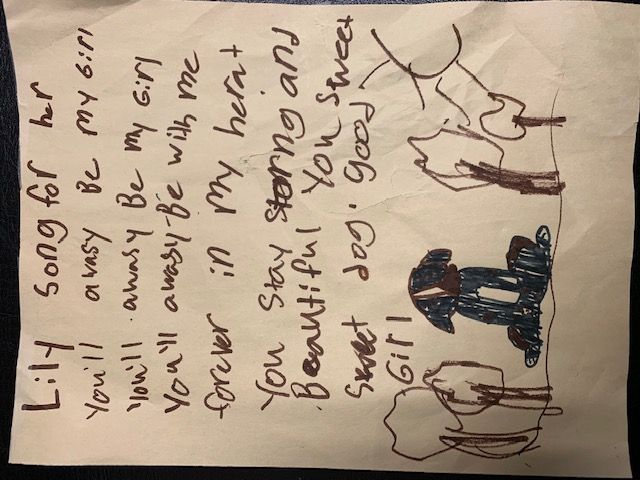 Lily song for her
You'll awasy Be my Girl
You'll awasy Be my Girl
You'll awasy Be with me
forever in my heart
You Stay storng and
Beautiful You Sweet
Sweet dog. good
Girl